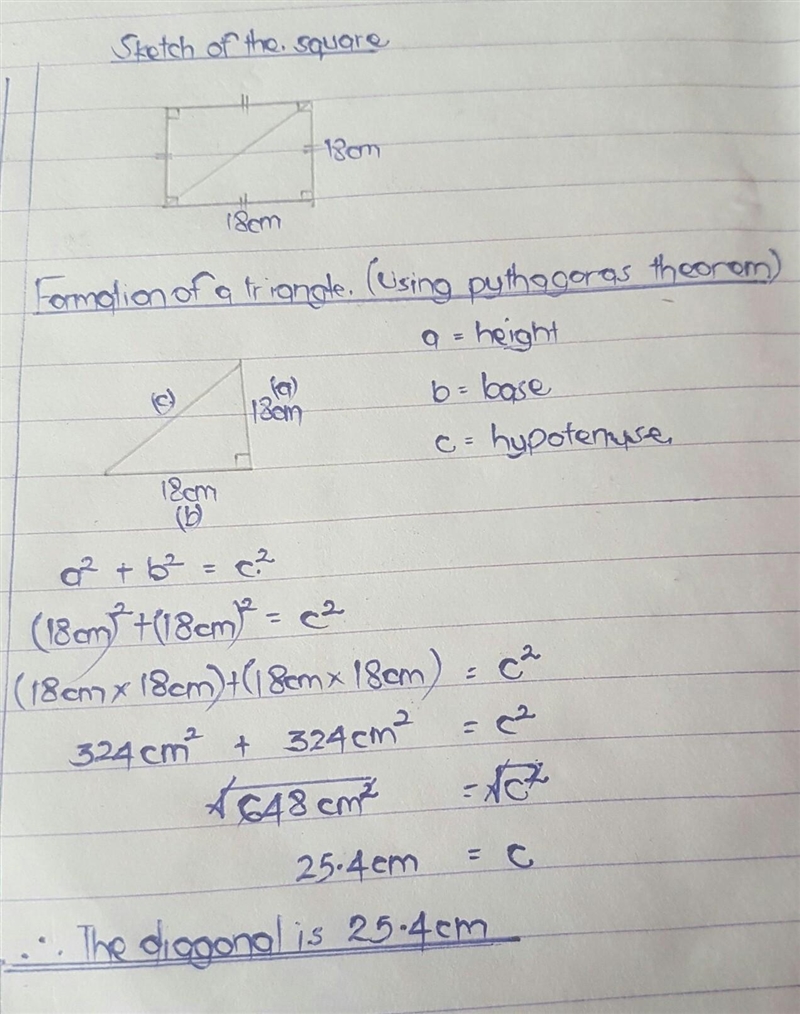 Sketch of the. square
18cm
18cm
Formation of a triangle. (Using pythagoras theorom)
a = height
(c)
(a)
18cm
b = base
c = hypotenuse.
18cm
(b)
a² + b² = c²
(18cm)²+(18cm)² = c²
(18cm × 18cm)+(18cm × 18cm) = c²
324cm² + 324cm² = c²
√648cm² = √c²
25.4cm = c
∴ The diagonal is 25.4cm